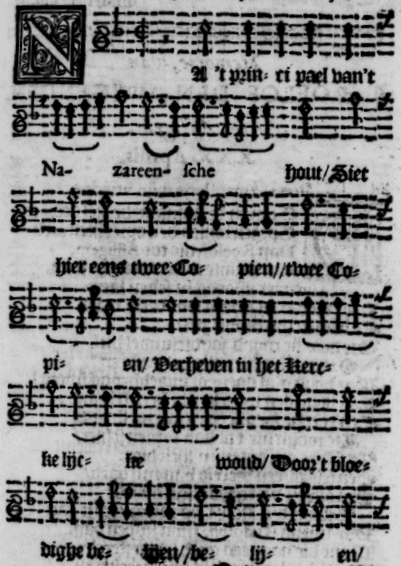 NA 't prin- ci pael van't
Na- zareen- sche hout/Siet
hier eens twee Co- pien//twee Co-
pi- en/ Verheven in het Kerc-
ke lijc- ke woud/Door't bloe-
dighe be- lijen//be- lij- en/